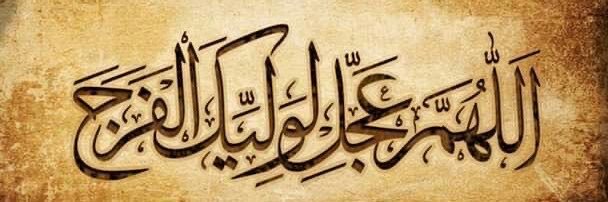 اَللّٰهُمَّ عَجِّلْ لِوَلِیِّکَ الْفَرَجَ